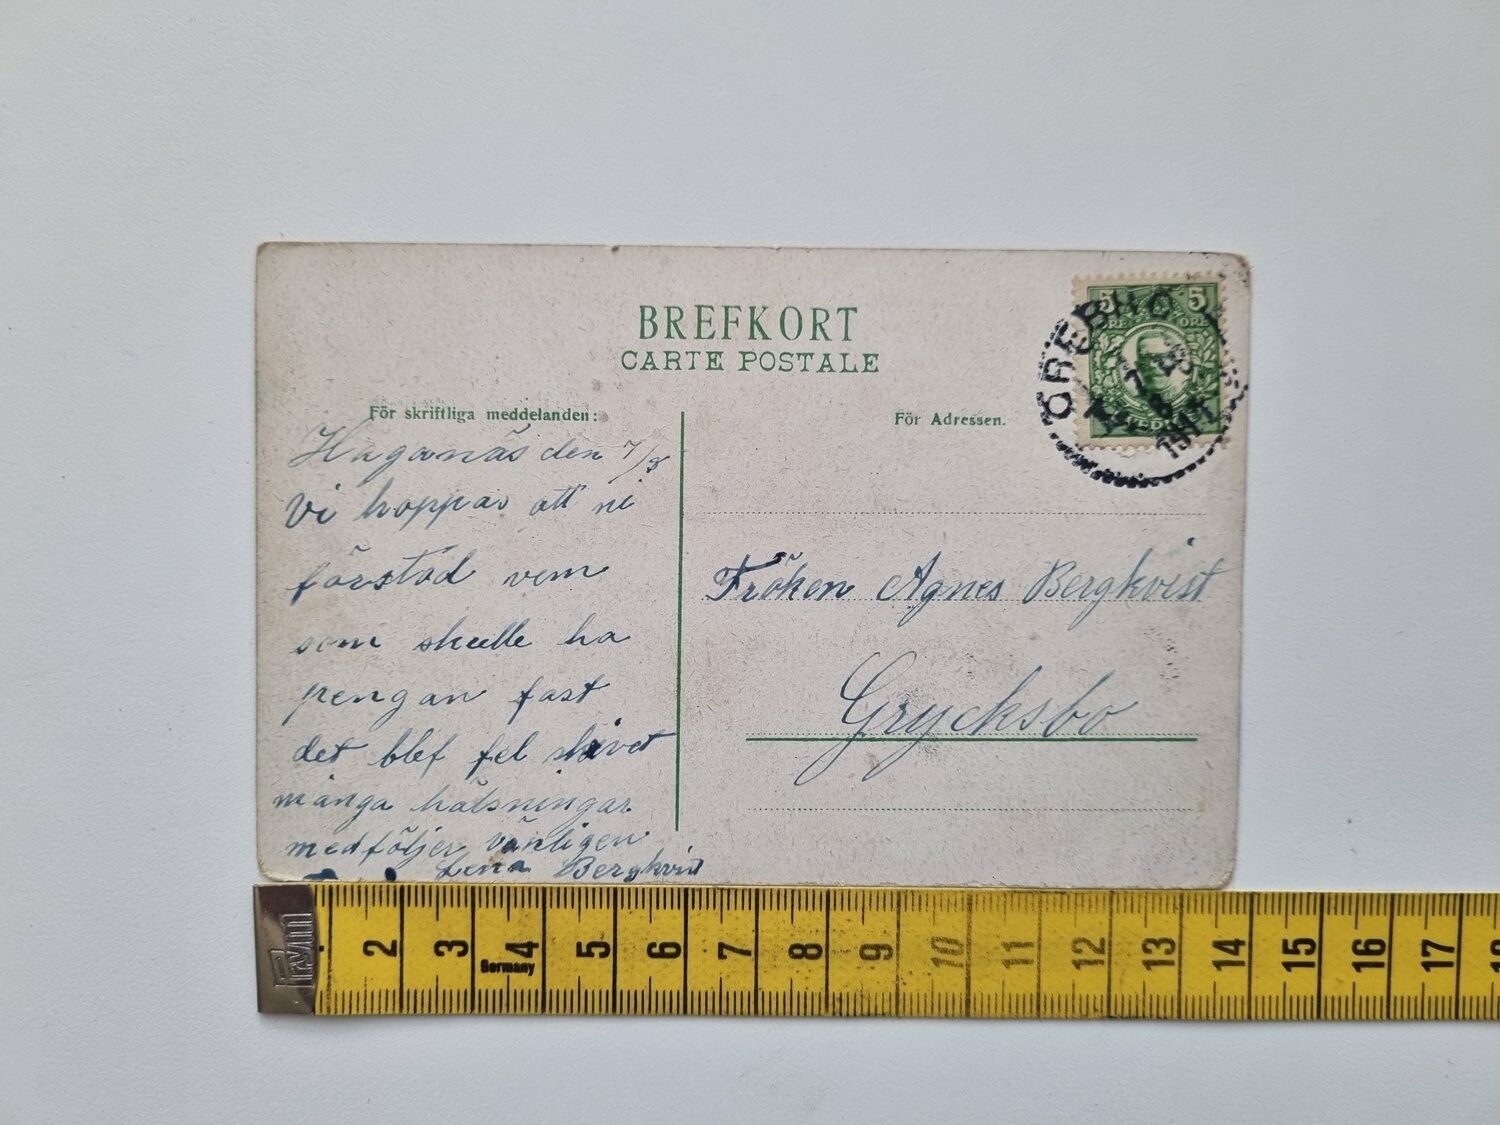 BREFKORT
CARTE POSTALE
För skriftliga meddelanden:
För Adressen.
Haganäs den 7/8
Vi hoppas att ni
förstod vem
som skulle ha
pengan fast
det blef fel skivet
många hälsningar
medföljer vänligen
Lena Bergkvist
5 5
ÖRE ÖRE
ÖREBRO
7 8
Fröken Agnes Bergkvist
Grycksbo
2 3 4 5 6 7 8 9 10 11 12 13 14 15 16 17 18
Germany